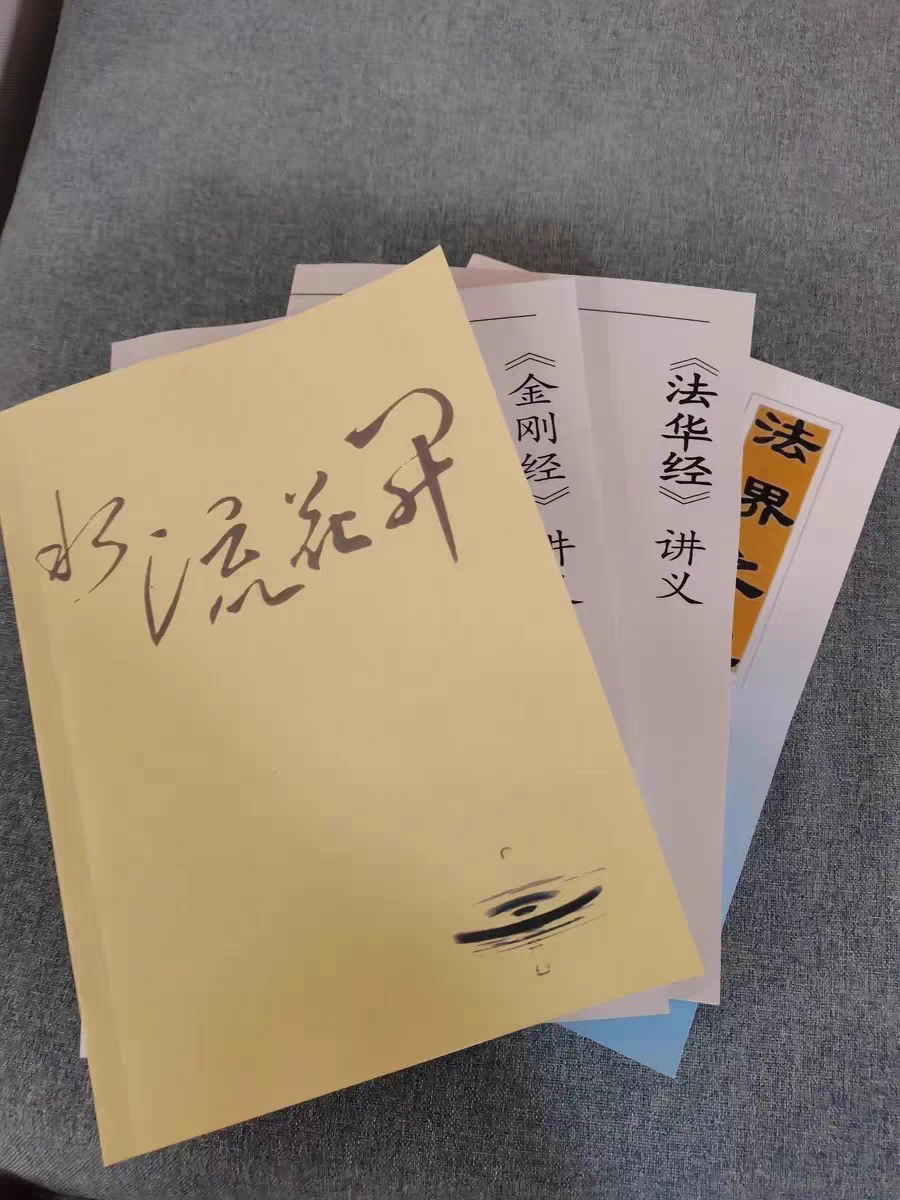 水流花開
《金刚经》讲义
《法华经》讲义
法界之